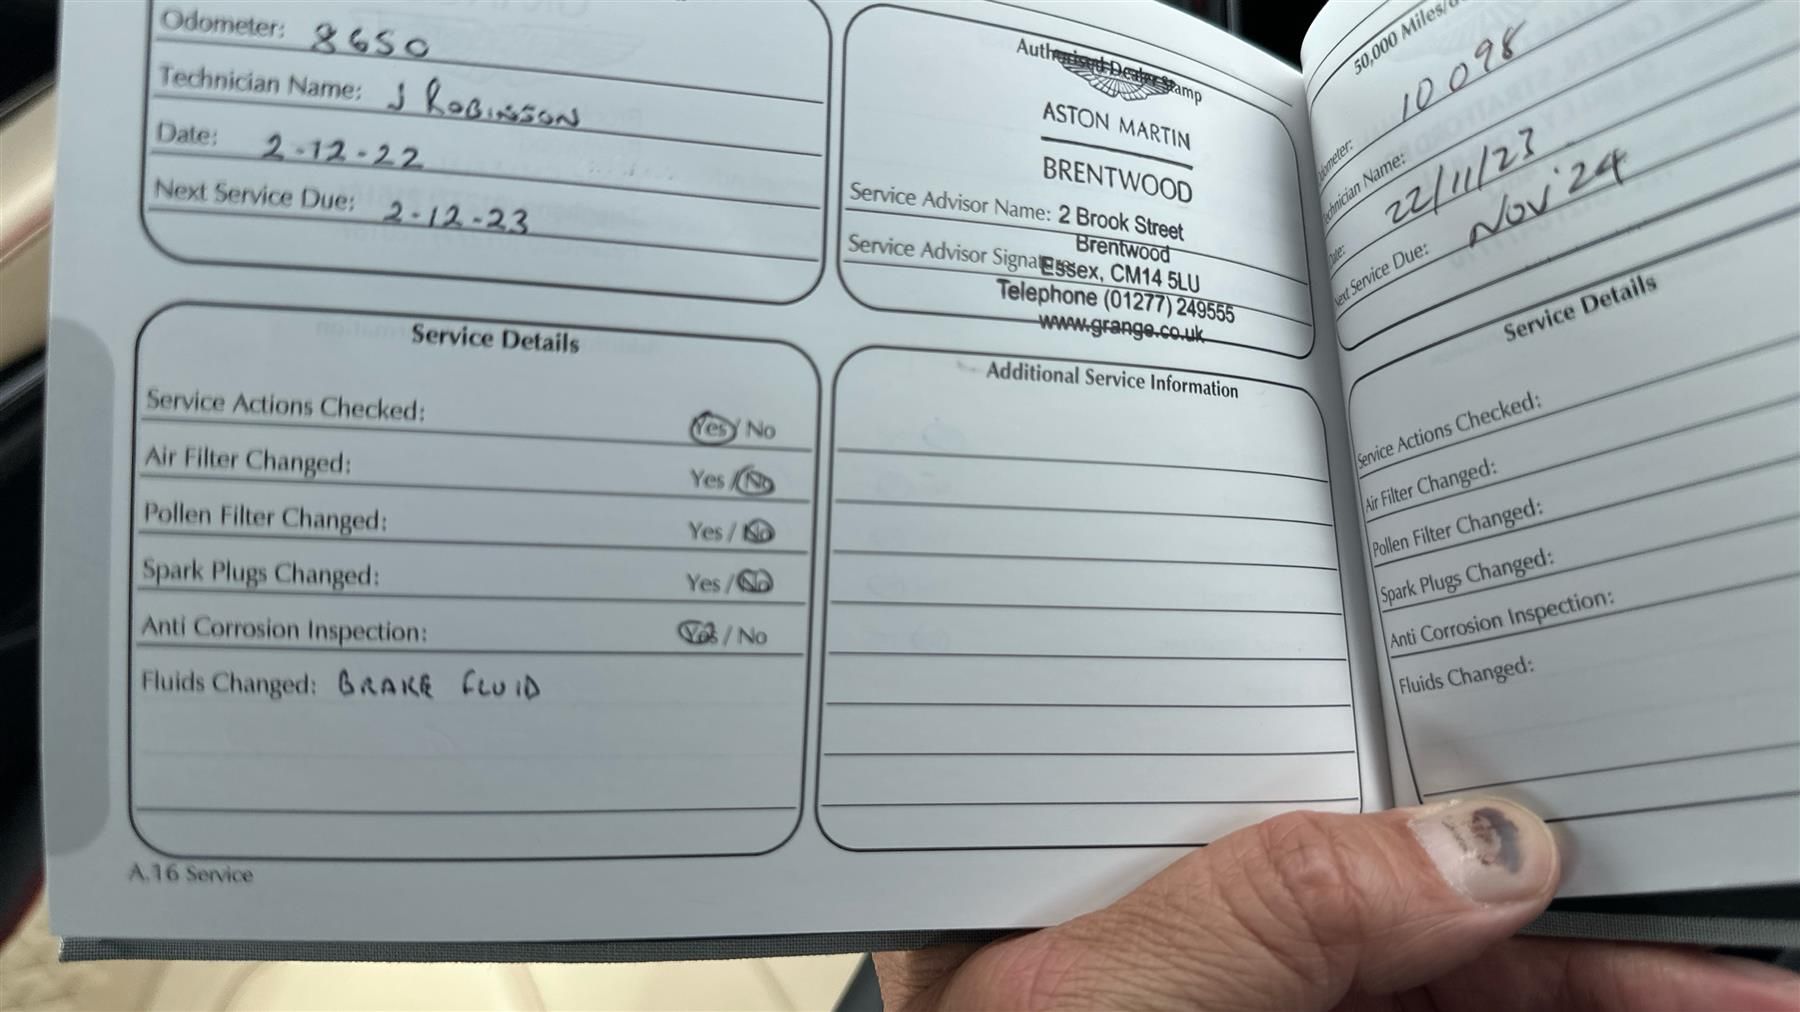 Odometer: 8650
Technician Name: J ROBINSON
Date: 2-12-22
Next Service Due: 2-12-23
Authorised Dealer Stamp
ASTON MARTIN
BRENTWOOD
Service Advisor Name: 2 Brook Street
Brentwood
Service Advisor Signature:
Essex, CM14 5LU
Telephone (01277) 249555
www.grange.co.uk
Service Details
Service Actions Checked: Yes / No
Air Filter Changed: Yes / No
Pollen Filter Changed: Yes / No
Spark Plugs Changed: Yes / No
Anti Corrosion Inspection: Yes / No
Fluids Changed: BRAKE FLUID
Additional Service Information
A.16 Service
50,000 Miles/
Odometer: 10098
Technician Name:
Date: 22/11/23
Next Service Due: NOV '24
Service Details
Service Actions Checked:
Air Filter Changed:
Pollen Filter Changed:
Spark Plugs Changed:
Anti Corrosion Inspection:
Fluids Changed: